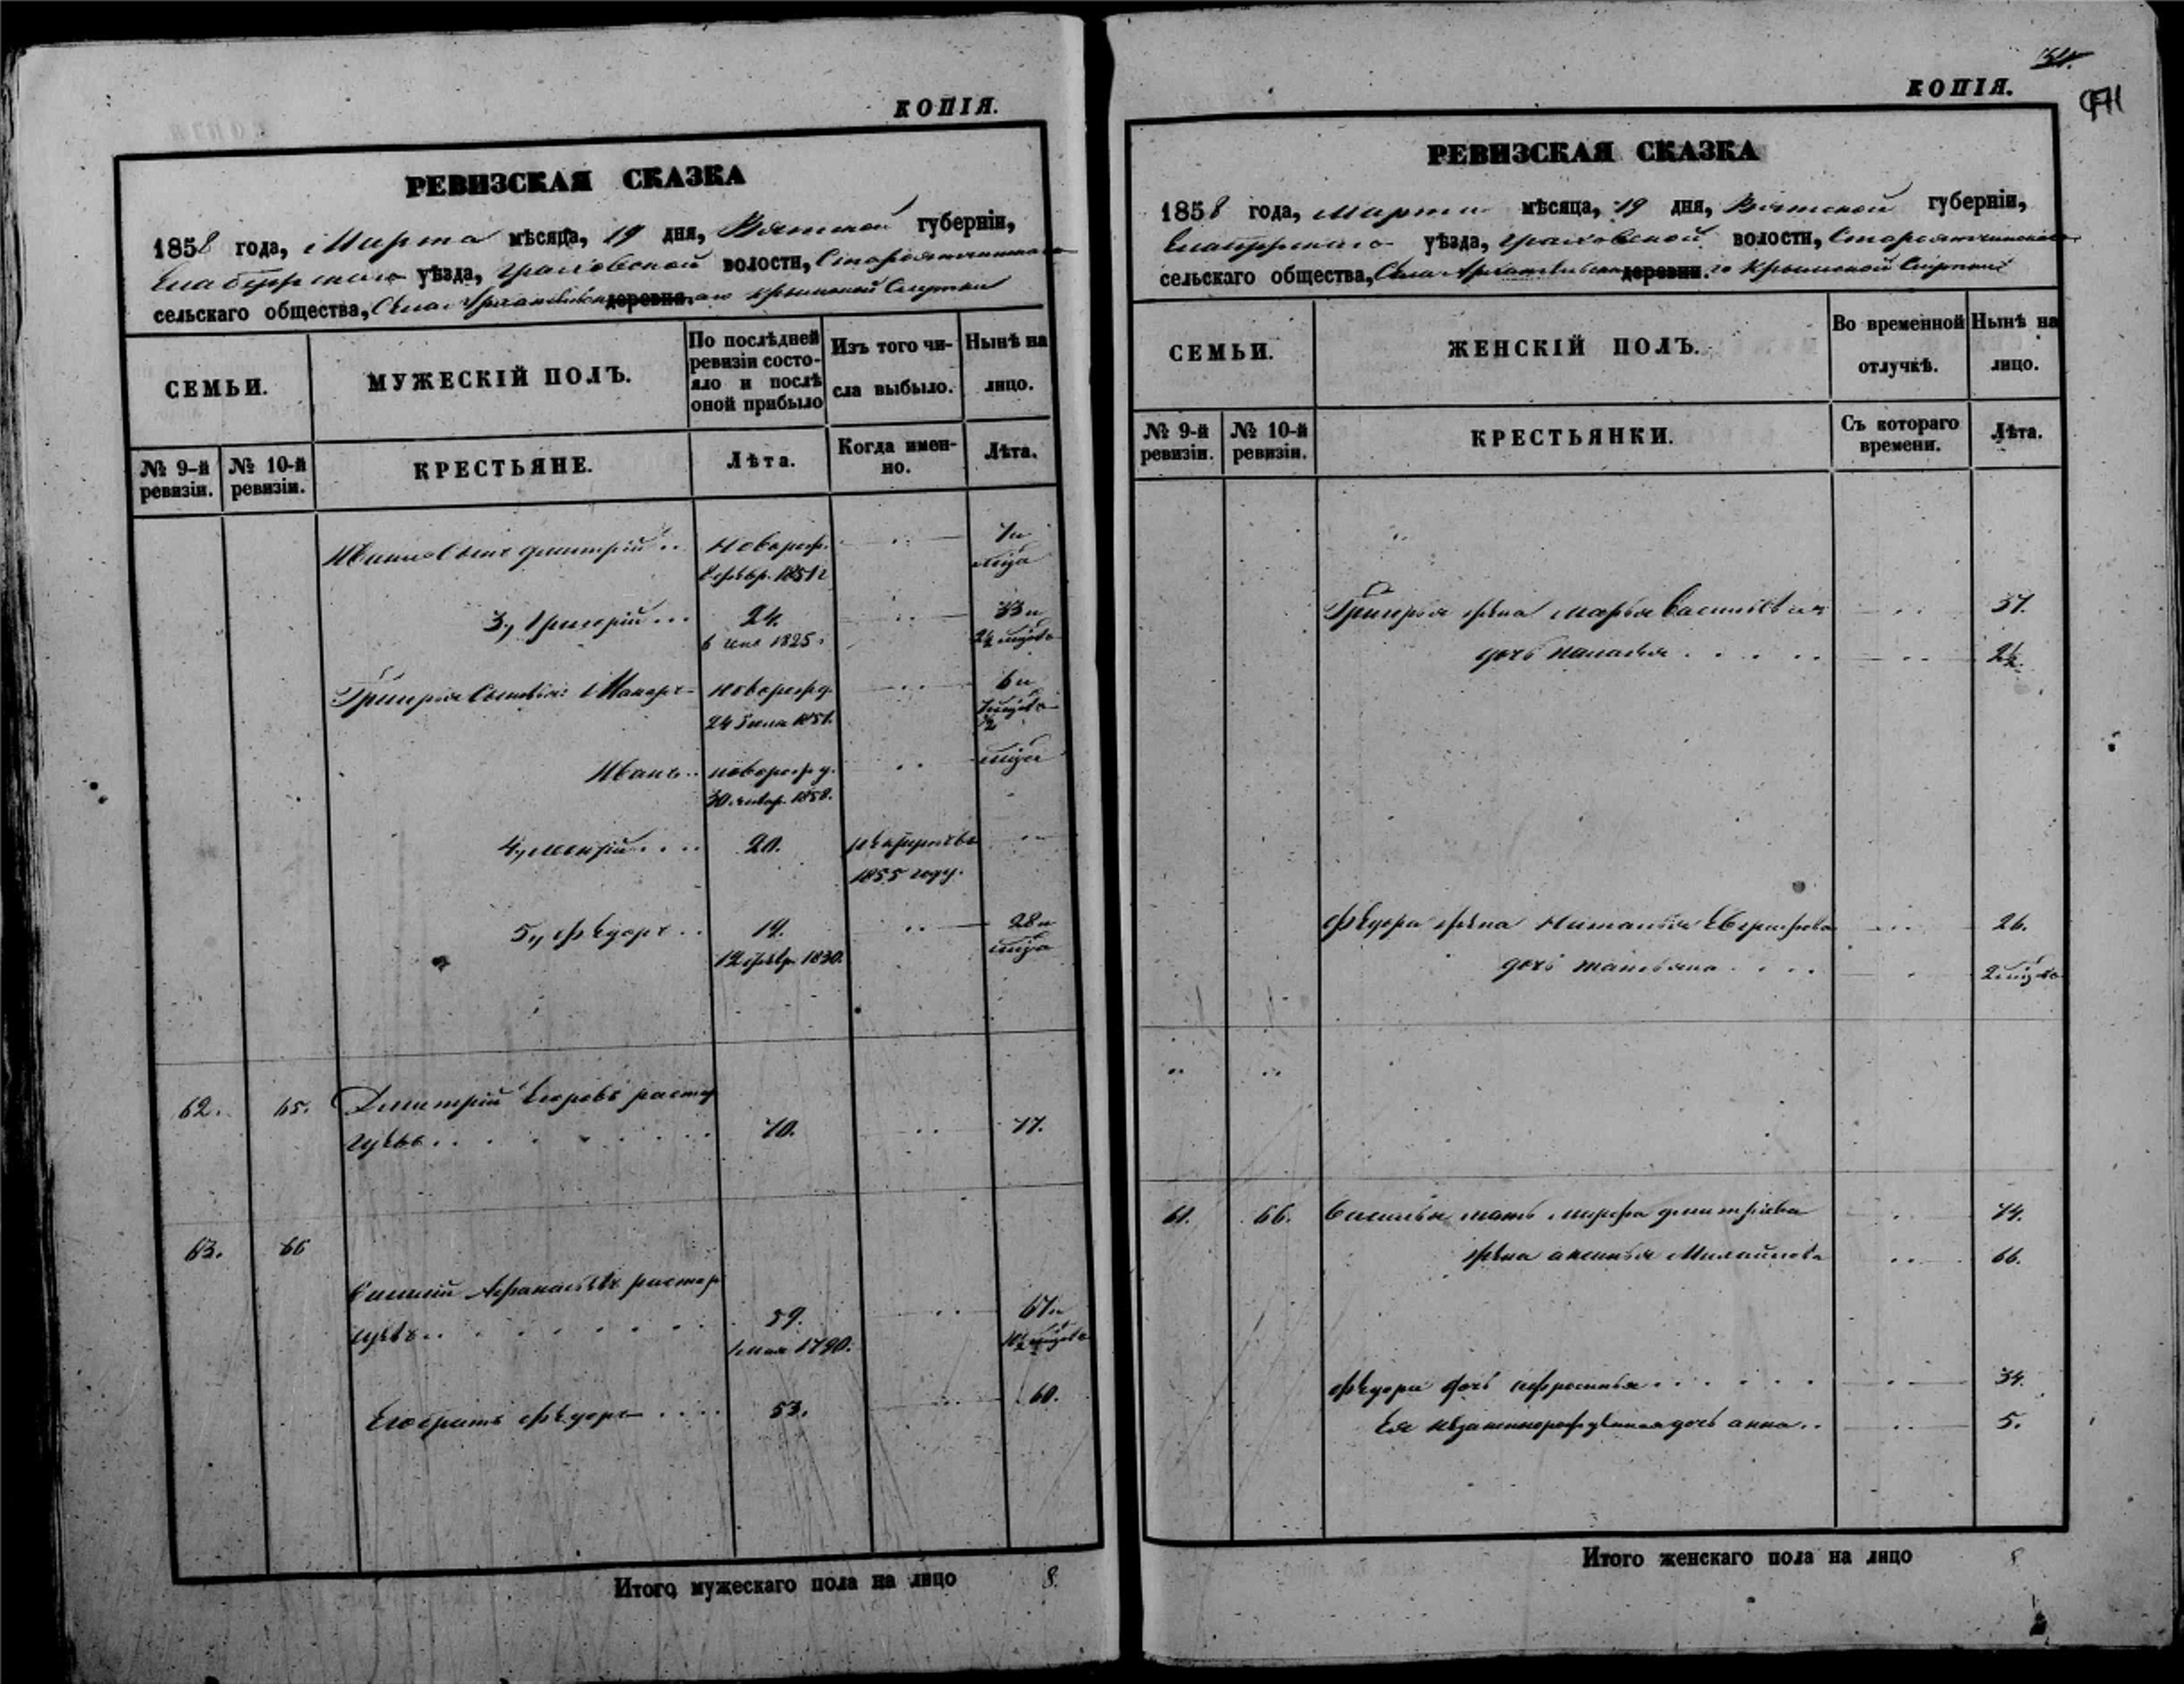 КОПІЯ.
РЕВИЗСКАЯ СКАЗКА
1858 года, Марта мѣсяца, 19 дня, Вятской губерніи,
Елабужскаго уѣзда, Граховской волости,
сельскаго общества, Села деревни. Крымской Слудки
СЕМЬИ.
МУЖЕСКІЙ ПОЛЪ.
По послѣдней
ревизіи состо-
яло и послѣ
оной прибыло
Изъ того чи-
сла выбыло.
Нынѣ на
лицо.
№ 9-й
ревизіи.
№ 10-й
ревизіи.
КРЕСТЬЯНЕ.
Лѣта.
Когда имен-
но.
Лѣта.
Ивана сынъ Дмитрій .. новорож. 7 и
8 февр. 1851 г мѣца
3, Григорій ... 24. 33 и
6 1825.
Григорья сыновья: Макаръ новорожд. 6 и
24 Іюля 1851.
Иванъ .. новорожд. мѣца
30 январ. 1858.
4, .... 20. рекрутъ въ
1855 году.
5, Ѳедоръ .. 19. 28 и
12 февр. 1830. мѣца
62. 65. Дмитрій Егоровъ растор
гуевъ .. 70. 77.
63. 66
Василій Афанасьевъ растор
гуевъ .. 59. 67 и
1 мая 1790.
Его братъ Ѳедоръ .... 53. 60.
Итого мужескаго пола на лицо 8.
КОПІЯ.
РЕВИЗСКАЯ СКАЗКА
1858 года, Марта мѣсяца, 19 дня, Вятской губерніи,
Елабужскаго уѣзда, Граховской волости,
сельскаго общества, Села деревни. Крымской Слудки
СЕМЬИ.
ЖЕНСКІЙ ПОЛЪ.
Во временной
отлучкѣ.
Нынѣ на
лицо.
№ 9-й
ревизіи.
№ 10-й
ревизіи.
КРЕСТЬЯНКИ.
Съ котораго
времени.
Лѣта.
Григорья жена Марья Васильева 37.
дочь Наталья .....
Ѳедора жена 26.
дочь Татьяна .... 2 мѣсяца
61. 66. Василья мать Марфа Дмитріева 74.
жена Аксинья Михайлова 66.
Ѳедора дочь Афросинья ...... 34.
Ея незаконнорожденная дочь Анна .. 5.
Итого женскаго пола на лицо 8